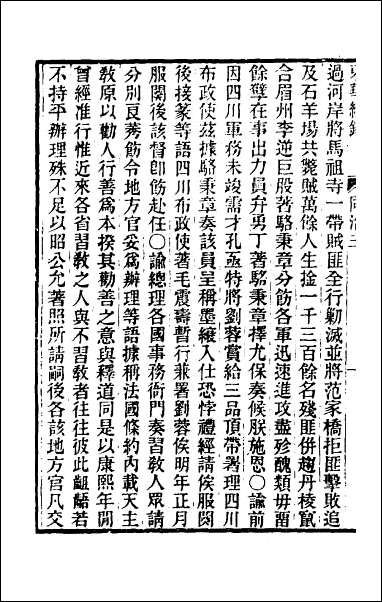 東華續錄　同治三
過河岸將馬祖寺一帶賊匪全行勦滅並將范家橋拒匪擊敗追
及石羊場共斃賊萬餘人生擒一千三百餘名殘匪併趨丹棱竄
合眉州李逆巨股著駱秉章分飭各軍迅速進攻盡殄醜類毋畱
餘孽在事出力員弁勇丁著駱秉章擇尤保奏候朕施恩○諭前
因四川軍務未竣需才孔亟特將劉蓉賞給三品頂帶署理四川
布政使茲據駱秉章奏該員呈稱墨縗入仕恐悖禮經請俟服闋
後接篆等語四川布政使著毛震壽暫行兼署劉蓉俟明年正月
服闋後該督卽飭赴任○諭總理各國事務衙門奏習教人眾請
分別良莠飭令地方官妥爲辦理等語據稱法國條約內載天主
教原以勸人行善爲本揆其勸善之意與釋道同是以康熙年閒
曾經准行惟近來各省習教之人與不習教者往往彼此齟齬若
不持平辦理殊不足以昭公允著照所請嗣後各該地方官凡交